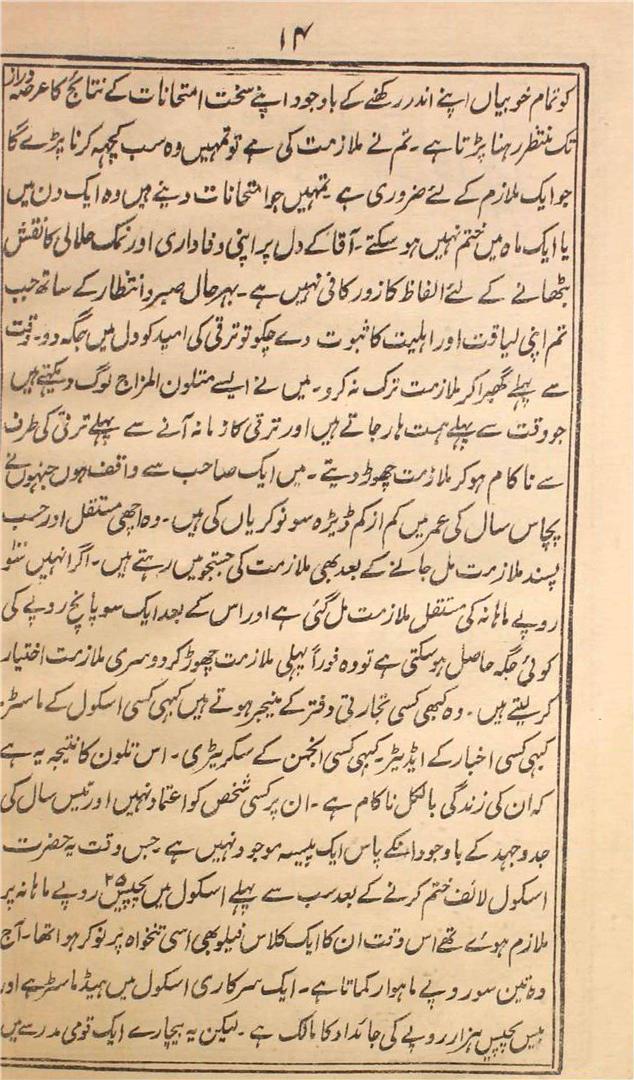 ۱۴
کو تمام خوبیاں اپنے اندر رکھنے کے باوجود اپنے سخت امتحانات کے نتائج کا عرصہ دراز
تک منتظر رہنا پڑتا ہے۔ تم نے ملازمت کی ہے تو تمہیں وہ سب کچھ کرنا پڑے گا
جو ایک ملازم کے لئے ضروری ہے۔ تمہیں جو امتحانات دینے ہیں وہ ایک دن میں
یا ایک ماہ میں ختم نہیں ہو سکتے۔ آقا کے دل پر اپنی وفاداری اور نمک حلالی کا نقش
بٹھانے کے لئے الفاظ کا زور کافی نہیں ہے۔ بہرحال صبر و انتظار کے ساتھ جب
تم اپنی لیاقت اور اہلیت کا ثبوت دے چکو تو ترقی کی امید کو دل میں جگہ دو۔ وقت
سے پہلے گھبرا کر ملازمت ترک نہ کرو۔ میں نے ایسے متلون المزاج لوگ دیکھتے ہیں
جو وقت سے پہلے ہمت ہار جاتے ہیں اور ترقی کا زمانہ آنے سے پہلے ترقی کی طرف
سے ناکام ہو کر ملازمت چھوڑ دیتے۔ میں ایک صاحب سے واقف ہوں جنہوں نے
پچاس سال کی عمر میں کم از کم ڈیڑہ سو نوکریاں کی ہیں۔ وہ اچھی مستقل اور حسب
پسند ملازمت مل جانے کے بعد بھی ملازمت کی جستجو میں رہتے ہیں۔ اگر انہیں سَو
روپے ماہانہ کی مستقل ملازمت مل گئی ہے اور اس کے بعد ایک سو پانچ روپے کی
کوئی جگہ حاصل ہو سکتی ہے تو وہ فوراً پہلی ملازمت چھوڑ کر دوسری ملازمت اختیار
کر لیتے ہیں۔ وہ کبھی کسی تجارتی دفتر کے منیجر ہوتے ہیں کبھی کسی اسکول کے ماسٹر۔
کبھی کسی اخبار کے ایڈیٹر۔ کبھی کسی انجمن کے سکریٹری۔ اس تلون کا نتیجہ یہ ہے
کہ ان کی زندگی بالکل ناکام ہے۔ ان پر کسی شخص کو اعتماد نہیں اور تیس سال کی
جد و جہد کے باوجود انکے پاس ایک پیسہ موجود نہیں ہے۔ جس وقت یہ حضرت
اسکول لائف ختم کرنے کے بعد سب سے پہلے اسکول میں پچیس ۲۵ روپے ماہانہ پر
ملازم ہوئے تھے اس وقت ان کا ایک کلاس فیلو بھی اسی تنخواہ پر نوکر ہوا تھا۔ آج
وہ تین سو روپے ماہوار کماتا ہے۔ ایک سرکاری اسکول میں ہیڈ ماسٹر ہے اور
بیس پچیس ہزار روپے کی جائداد کا مالک ہے۔ لیکن یہ بیچارے ایک قومی مدرسے میں